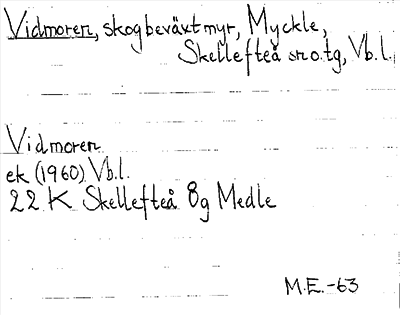 Vidmoren, skogbeväxt myr, Myckle,
Skellefteå sn o. tg, Vb. l.
Vidmoren
ek (1960) Vb. l.
22 K Skellefteå 8g Medle
M.E.-63